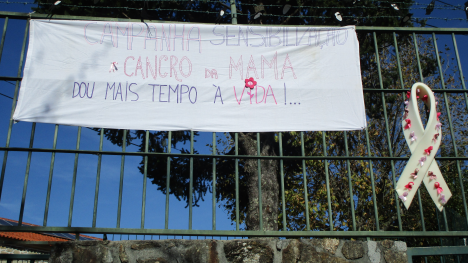 CAMPANHA SENSIBILIZAÇÃO
CANCRO DA MAMA
DOU MAIS TEMPO À VIDA!...